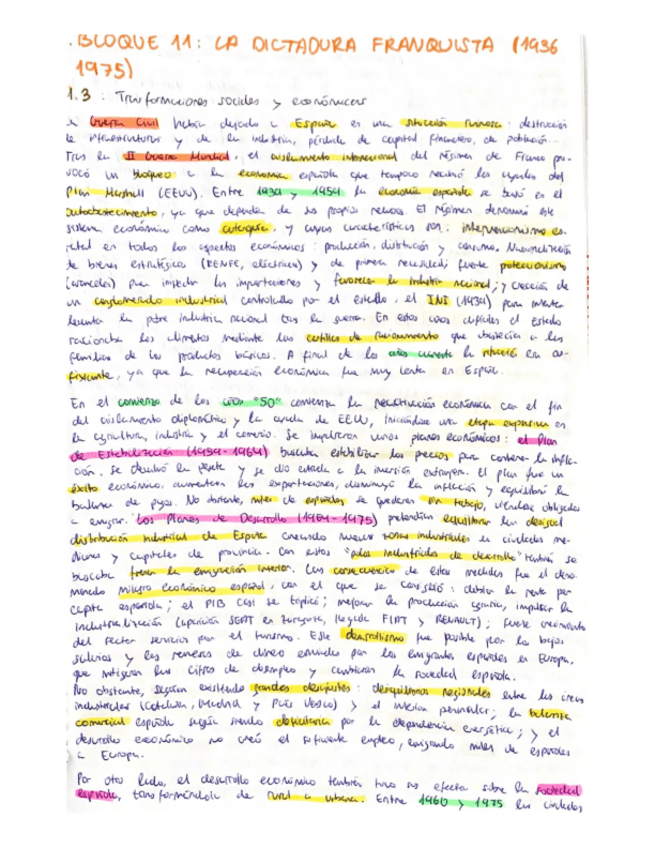 . BLOQUE 11: LA DICTADURA FRANQUISTA (1936
1975)
1.3 : Transformaciones sociales y económicas
La Guerra Civil había dejado a España en una situación ruinosa: destrucción
de infraestructuras y de la industria, pérdida de capital financiero, de población...
Tras la II Guerra Mundial, el aislamiento internacional del régimen de Franco pro-
vocó un bloqueo a la economía española que tampoco recibió las ayudas del
Plan Marshall (EEUU). Entre 1939 y 1959 la economía española se basó en el
autoabastecimiento, ya que dependía de sus propios recursos. El régimen denominó este
sistema económico como autarquía, y cuyas características son: intervencionismo es-
tatal en todos los aspectos económicos: producción, distribución y consumo. Nacionalización
de bienes estratégicos (RENFE, eléctricas) y de primera necesidad; fuerte proteccionismo
(aranceles) para impedir las importaciones y favorecer la industria nacional; y creación de
un conglomerado industrial controlado por el estado, el INI (1939) para intentar
levantar la pobre industria nacional tras la guerra. En estos años difíciles el Estado
racionaba los alimentos mediante las cartillas de racionamiento que abastecían a las
familias de los productos básicos. A final de los años cuarenta la situación era as-
fixiante, ya que la recuperación económica fue muy lenta en España.
En el comienzo de los años "50" comienza la reactivación económica con el fin
del aislamiento diplomático y la ayuda de EEUU, iniciándose una etapa expansiva en
la agricultura, industria y el comercio. Se implantaron unos planes económicos: el Plan
de Estabilización (1959-1964) buscaba estabilizar los precios para contener la infla-
ción. Se devaluó la peseta y se dio entrada a la inversión extranjera. El plan fue un
éxito económico, aumentaron las exportaciones, disminuyó la inflación y equilibró la
balanza de pagos. No obstante, miles de españoles se quedaron sin trabajo, viéndose obligados
a emigrar. Los Planes de Desarrollo (1964-1975) pretendían equilibrar la desigual
distribución industrial de España creando nuevas zonas industriales en ciudades me-
dianas y capitales de provincia. Con estos "polos industriales de desarrollo" también se
buscaba frenar la emigración interior. La consecuencia de estas medidas fue el deno-
minado milagro económico español, con el que se consiguió: doblar la renta per
cápita española; el PIB casi se triplicó; mejorar la producción agraria, impulsar la
industrialización (aparición SEAT en llegada FIAT y RENAULT); fuerte crecimiento
del sector servicios por el turismo. Este desarrollismo fue posible por los bajos
salarios y las remesas de dinero enviadas por los emigrantes españoles en Europa,
que mitigaron las cifras de desempleo y cambiaron la sociedad española.
No obstante, seguían existiendo grandes desajustes: desequilibrios regionales entre las áreas
industriales (Cataluña, Madrid y País Vasco) y el interior peninsular; la balanza
comercial española seguía siendo deficitaria por la dependencia energética; y el
desarrollo económico no creó el suficiente empleo, emigrando miles de españoles
a Europa.
Por otro lado, el desarrollo económico también tuvo su efecto sobre la sociedad
española, transformándola de rural a urbana. Entre 1960 y 1975 las ciudades